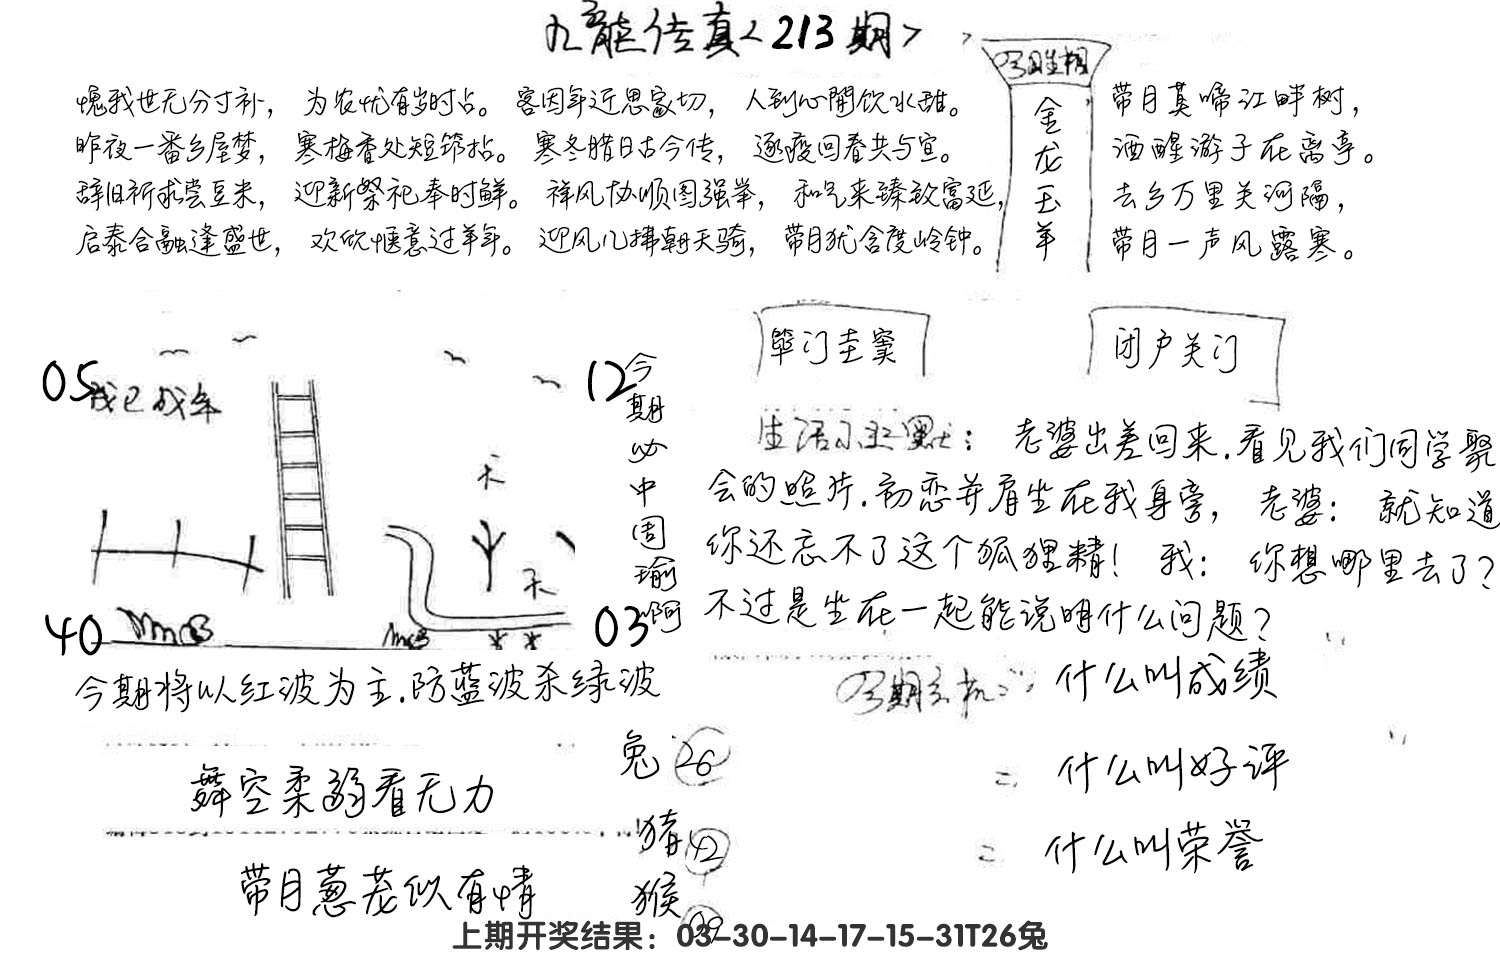 九龙传真<213期>
愧我世无分寸补，为农忧有岁时占。客因年近思家切，人到心闲饮水甜。
昨夜一番乡屋梦，寒梅香处短筇拈。寒冬腊日古今传，逐疫回春共与宜。
辞旧祈求尝豆米，迎新祭祀奉时鲜。祥风协顺图强举，和气来臻致富延，
启泰合融逢盛世，欢欣惬意过羊年。迎风几拂朝天骑，带月犹含度岭钟。
今期生相
金龙玉羊
带月莫啼江畔树，
酒醒游子在离亭。
去乡万里关河隔，
带月一声风露寒。
05
我已成年
天
天
40
12
03
今期必中周瑜啊
今期将以红波为主.防蓝波杀绿波
筚门圭窦
闭户关门
生活小幽默：老婆出差回来.看见我们同学聚
会的照片.初恋并肩坐在我身旁，老婆：就知道
你还忘不了这个狐狸精！我：你想哪里去了？
不过是坐在一起能说明什么问题？
今期玄机：什么叫成绩
什么叫好评
什么叫荣誉
舞空柔弱看无力
带月葱茏似有情
兔 26
猪 42
猴 09
上期开奖结果：03-30-14-17-15-31T26兔